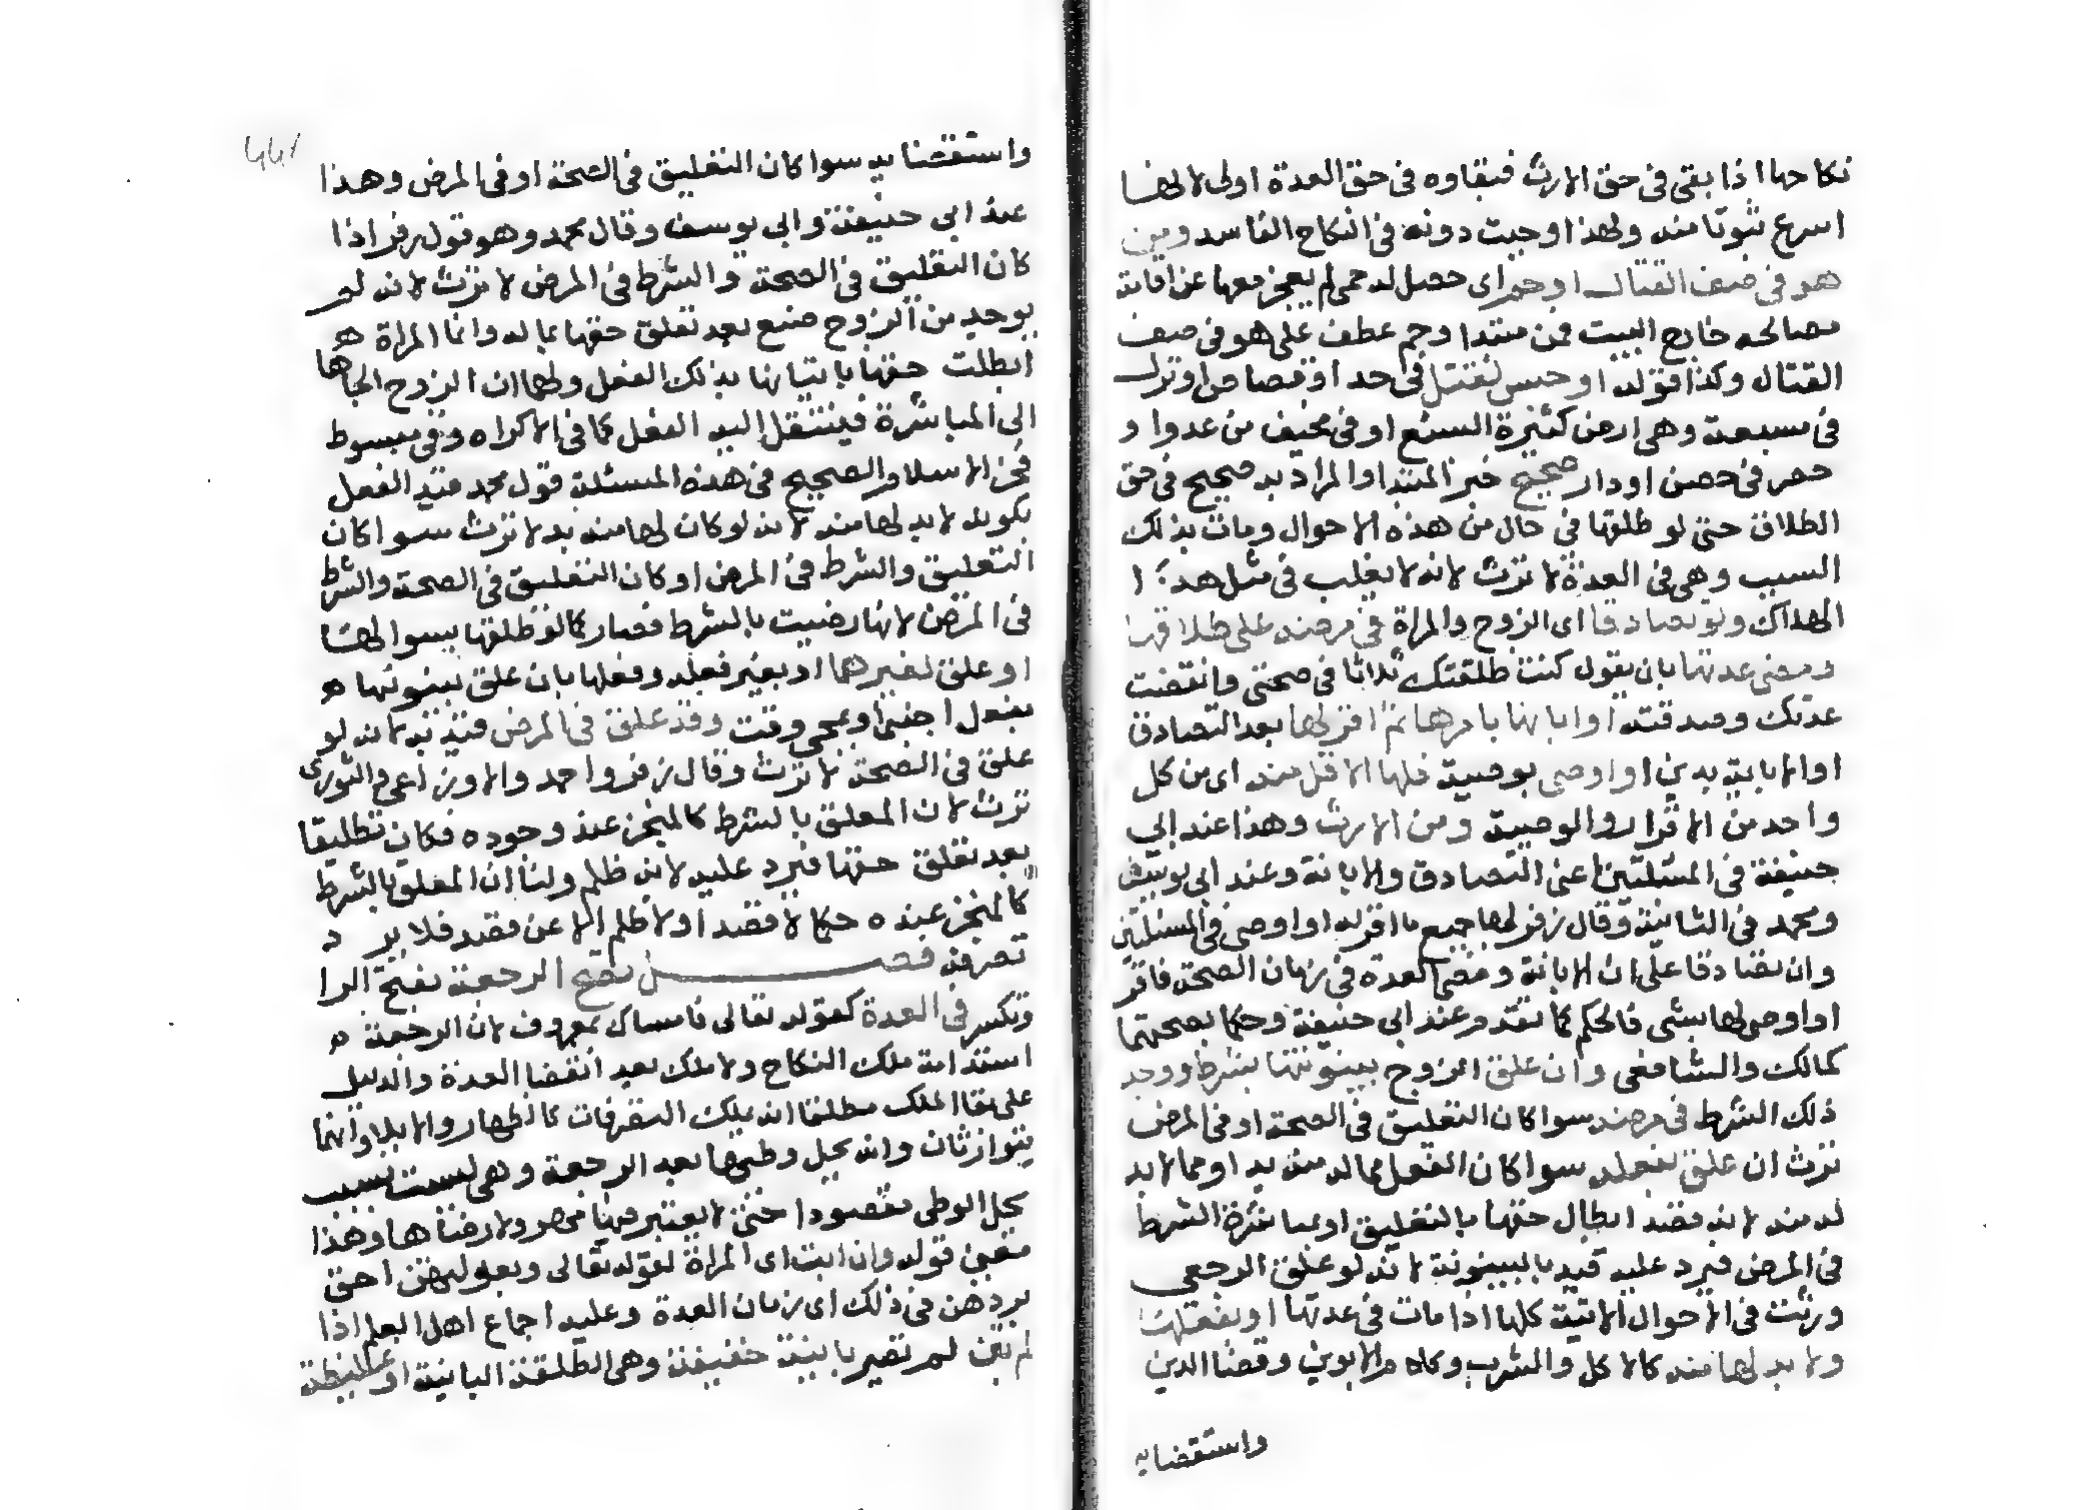 نكاحها اذا بقى فى حق الارث فبقاوه فى حق العدة اولى لانها
اسرع ثبوتا منه ولهذا وجبت دونه فى النكاح الفاسد ومن
هو فى صف القتال او حم اى حصل له حمى لم يعجز معها عن اقامة
مصالحه خارج البيت فمن مبتدا وحم عطف على هو فى صف
القتال وكذا قوله او حبس لقتل فى حد او قصاص او ترك
فى مسبعة وهى ارض كثيرة السبع او فى مخيف من عدوا و
حصر فى حصن او دار صحيح خبر المبتدا والمراد به صحيح فى حق
الطلاق حتى لو طلقها فى حال من هذه الاحوال ومات بذلك
السبب وهى فى العدة لا ترث لانه لا يغلب فى مثل هذا
الهلاك ولو تصادقا اى الزوج والمراة فى مرضه على طلاقها
ومضى عدتها بان يقول كنت طلقتك ثلاثا فى صحتى وانقضت
عدتك وصدقته او ابانها بامرها ثم اقر لها بعد التصادق
او الابانة بدين او اوصى بوصية فلها الاقل منه اى من كل
واحد من الاقرار والوصية ومن الارث وهذا عند ابى
حنيفة فى المسئلتين اعنى التصادق والابانة وعند ابى يوسف
ومحمد فى الثانية وقال زفر لها جميع ما اقر له او اوصى فى المسئلتين
وان تصادقا على ان الابانة ومضى العدة فى زمان الصحة فاقر
او اوصى لها بشى فالحكم كما تقدم عند ابى حنيفة وحكما بصحتهما
كمالك والشافعى وان علق الزوج بينونتها بشرط ووجد
ذلك الشرط فى مرضه سوا كان التعليق فى الصحة او فى المرض
ترث ان علق بفعله سوا كان الفعل مما له منه بد او مما لا بد
له منه لانه قصد ابطال حقها بالتعليق او بمباشرة الشرط
فى المرض فيرد عليه قيد بالبينونة لانه لو علق الرجعى
ورثت فى الاحوال الاتية كلها اذا مات فى عدتها او بفعلها
ولا بد لها منه كالاكل والشرب وكلام الابوين وقضا الدين
واستقضايه
واستقضايه سوا كان التعليق فى الصحة او فى المرض وهذا
عند ابى حنيفة وابى يوسف وقال محمد وهو قول زفر اذا
كان التعليق فى الصحة والشرط فى المرض لا ترث لانه لم
يوجد من الزوج صنع بعد تعلق حقها بماله وانما المراة هى
ابطلت حقها باتيانها بذلك الفعل ولهما ان الزوج الجاها
الى المباشرة فينتقل اليه الفعل كما فى الاكراه وفى مبسوط
فخر الاسلام والصحيح فى هذه المسئلة قول محمد قيد الفعل
بكونه لا بد لها منه لانه لو كان لها منه بد لا ترث سوا كان
التعليق والشرط فى المرض او كان التعليق فى الصحة والشرط
فى المرض لانها رضيت بالشرط فصار كما لو طلقها بسوالها
او علق لغيرهما او بغير فعله وفعلها بان علق بينونتها
بفعل اجنبى او بمجى وقت وقد علق فى المرض قيد به لانه لو
علق فى الصحة لا ترث وقال زفر واحمد والاوزاعى والثورى
ترث لان المعلق بالشرط كالمنجز عند وجوده فكان تطليقا
بعد تعلق حقها فيرد عليه لانه ظلم ولنا ان المعلق بالشرط
كالمنجز عنده حكما لا قصدا ولا ظلم الا عن قصد فلا يرد
تصرفه فصل تصح الرجعة بفتح الرا
وتكسر فى العدة كقوله تعالى فامساك بمعروف لان الرجعة
استدامة ملك النكاح ولا ملك بعد انقضا العدة والدليل
على بقا الملك مطلقا انه يملك التصرفات كالظهار والايلا وانهما
يتوارثان وانه يحل وطيها بعد الرجعة وهى ليست بسبب
يحل الوطى مقصودا حتى لا يعتبر فيها مهر ولا رضاها وهذا
معنى قوله وان ابت اى المراة لقوله تعالى وبعولتهن احق
بردهن فى ذلك اى زمان العدة وعليه اجماع اهل العلم اذا
لم تبن لم تصر باينة خفيفة وهى الطلقة الباينة او غليظة